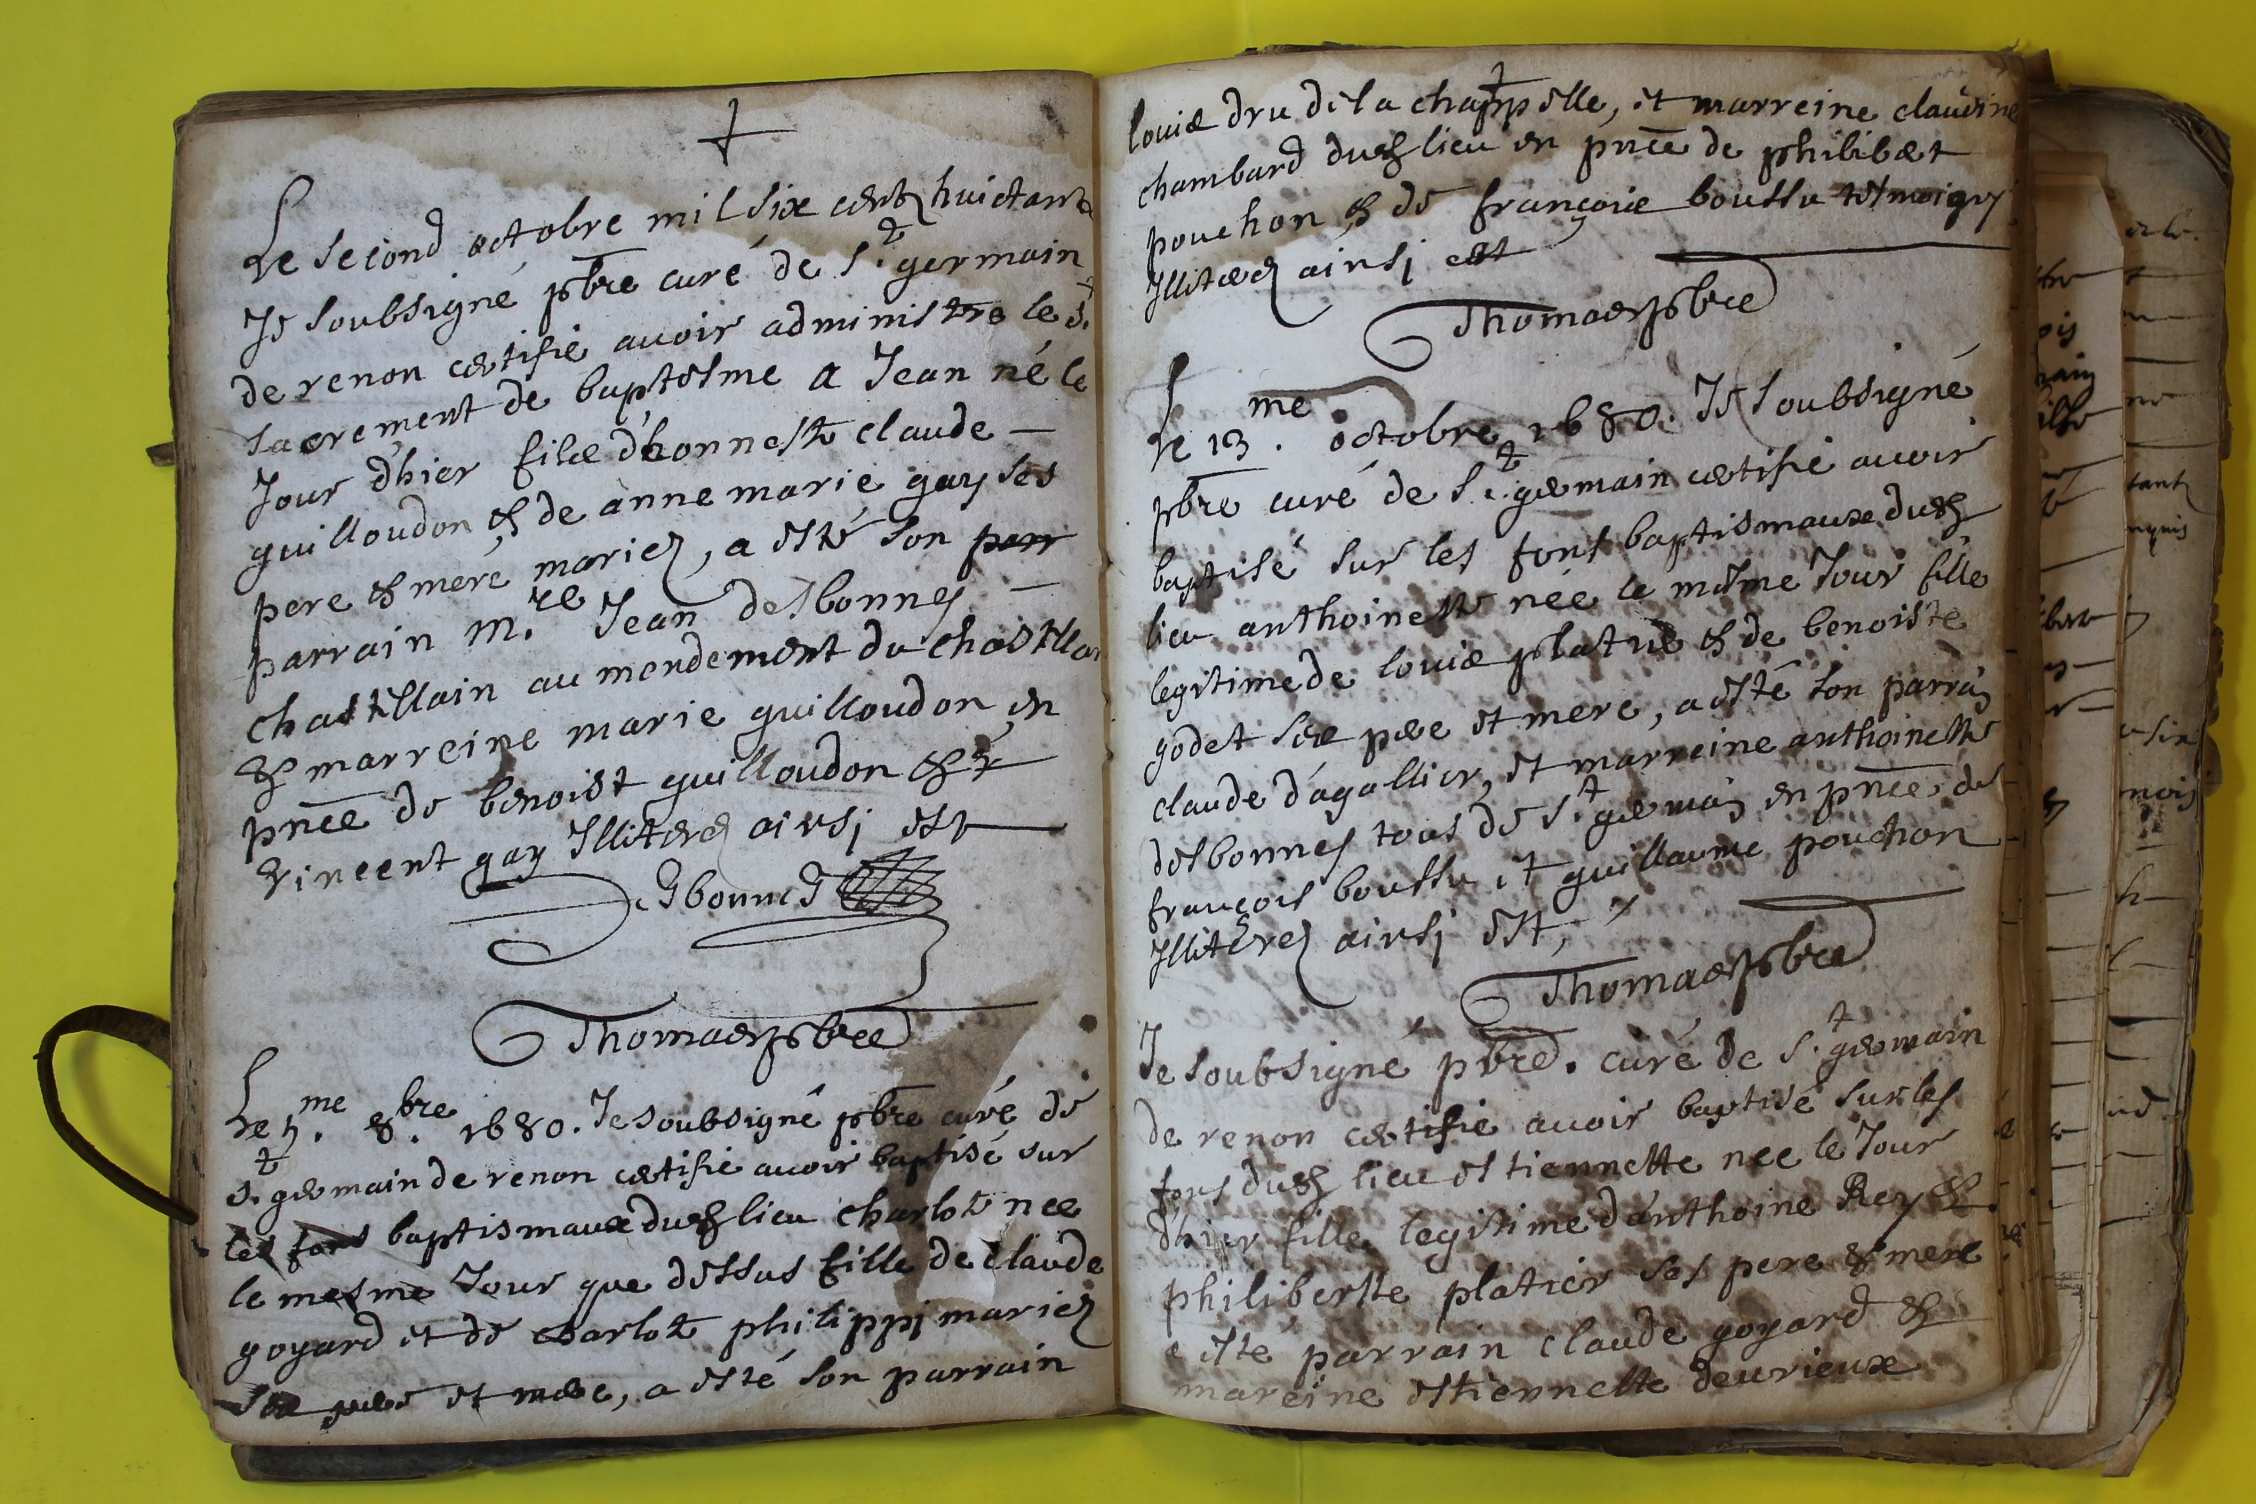 Le second octobre mil six centz huictante
Je soubsigné pbre curé de St. germain
de renon certifie auoir administre le St.
sacrement de baptesme a Jean né le
Jour d'hier filz d'honneste claude
guilloudon & de anne marie gay ses
pere & mere mariez, a esté son parr
parrain M.re Jean desbonnes
chastellain au mendement du chastellar
& marreine marie guilloudon en
pnce de benoist guilloudon & de
vincent gay Illiterez ainsj est
Desbonnes
Thomas pbre
Le 5.me 8.bre 1680. Je soubsigné pbre curé de
St. germain de renon certifie auoir baptisé sur
les fons baptismaux dud lieu charlote nee
le mesme Jour que dessus fille de claude
goyard et de charlote philippj mariez
ses pere et mere, a esté son parrain
louis dru de la chappelle, et marreine claudine
chambard dud lieu en pnce de philibert
pouchon & de françois boussu tesmoigns
Illiterez ainsj est
Thomas pbre
Le 13.me octobre 1680. Je soubsigné
pbre curé de St. germain certifie auoir
baptisé sur les fons baptismaux dud
lieu anthoinette née le mesme Jour fille
legitime de louis platrié & de benoiste
godet ses pere et mere, a esté son parrain
claude d'agallier, et marreine anthoinette
desbonnes tous de St. germain en pnce de
françois boussu et guillaume pouchon
Illiterez ainsj est,
Thomas pbre
Je soubsigné pbre. curé de St. germain
de renon certifie auoir baptisé sur les
fons dud lieu estiennette nee le Jour
d'hier fille legitime d'anthoine Rey &
philiberte platier ses pere & mere
a esté parrain claude goyard &
mareine estiennette deurieux